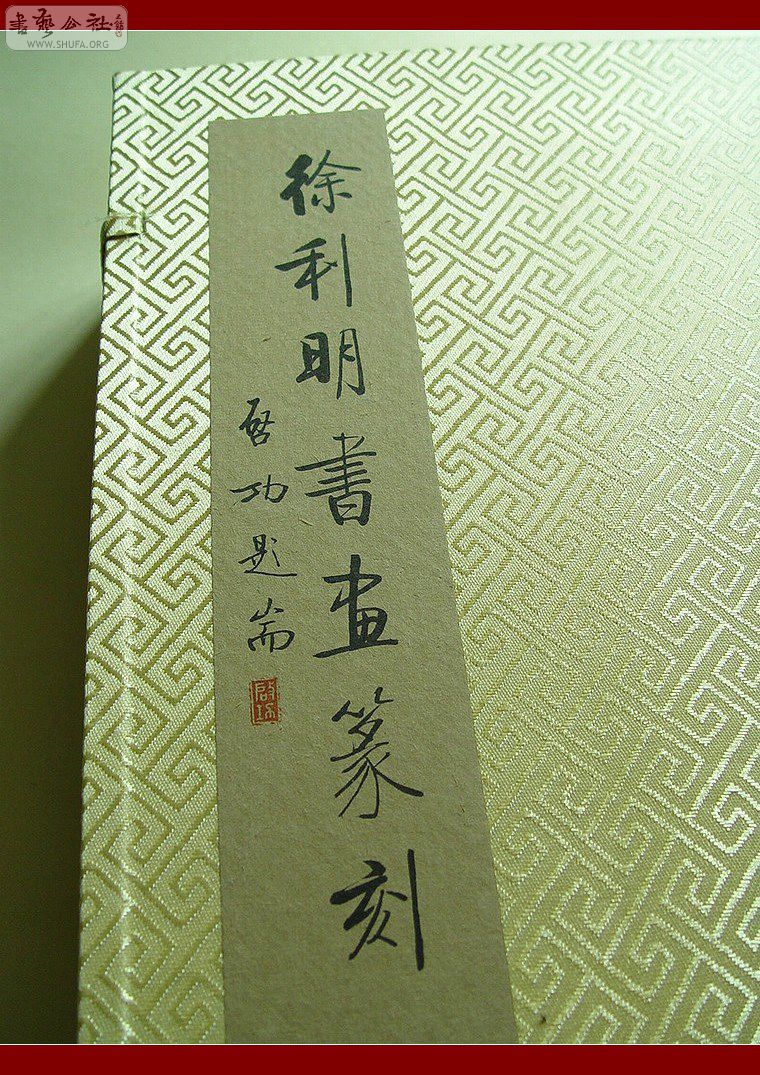 書藝公社
WWW.SHUFA.ORG
徐利明書畫篆刻
啓功題耑
啓功